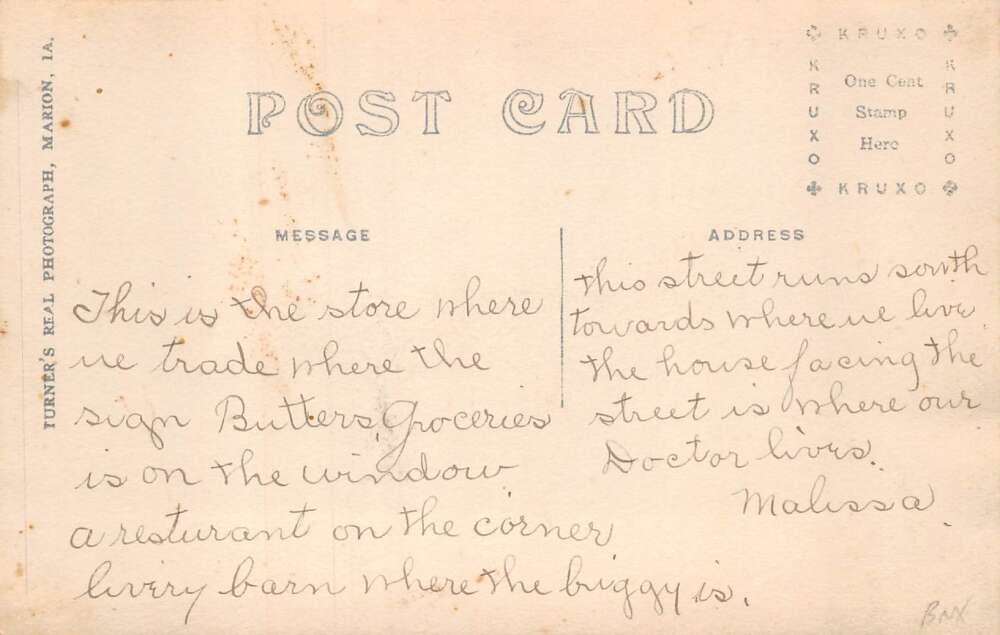 TURNER'S REAL PHOTOGRAPH, MARION, IA.
POST CARD
KRUXO
KRUXO
One Cent
Stamp
Here
KRUXO
KRUXO
MESSAGE
This is the store where
we trade where the
sign Butters, Groceries
is on the window
a resturant on the corner
livery barn where the buggy is.
ADDRESS
this street runs south
towards where we live
the house facing the
street is where our
Doctor lives.
Malissa.